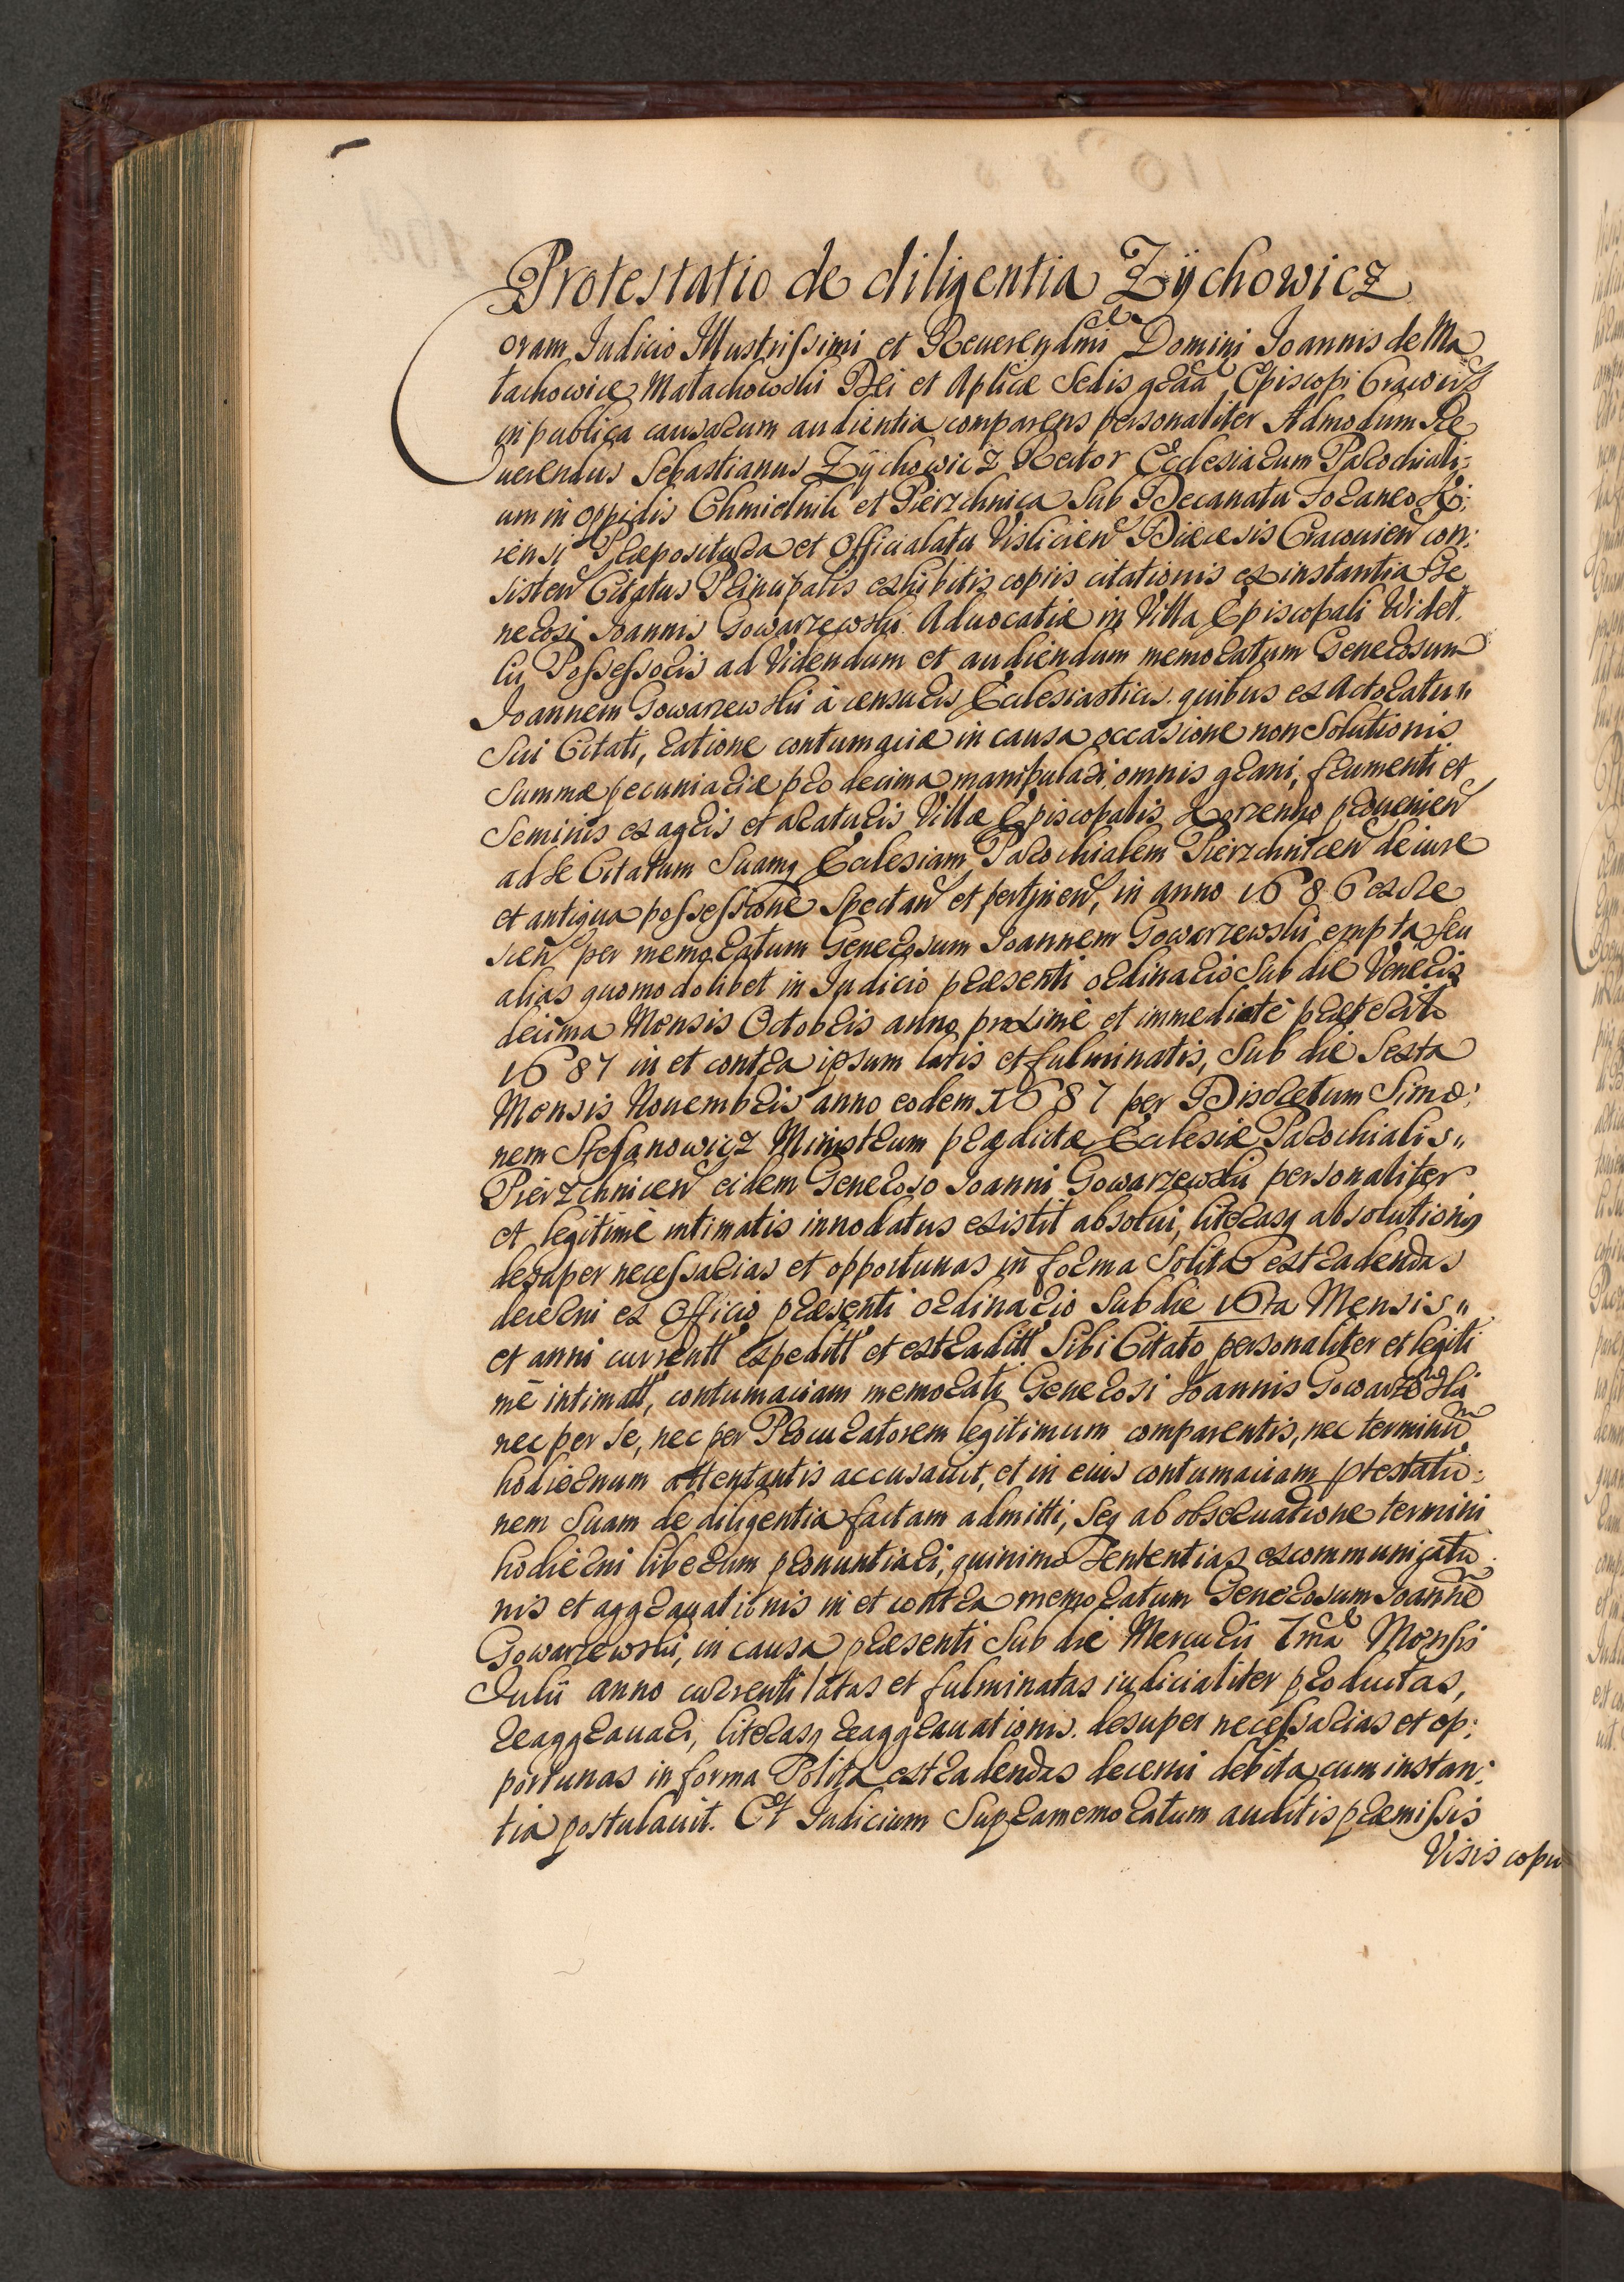 Protestatio de diligentia Zÿchowicz
Coram Judicio Illustrissimi et Reuerendmi Domini Joannis de Ma
łachowice Małachowski Dei et Aplicæ Sedis graa Episcopi Cracovien
in publica causarum audientia comparens personaliter Admodum Re
uerendus Sebastianus Zÿchowicz Rector Ecclesiarum Parochiali:
um in oppidis Chmielnik et Pierzchnica Sub Decanatu foraneo Ki:
iensi Præpositura et Officialatu Vislicien Diæcesis Cracouien con:
sisten Citatus Principalis exhibitis copiis citationis ex instantia Ge
nerosi Joannis Gowarzewski Aduocatiæ in Villa Episcopali Wideł
ki Possessoris ad Videndum et audiendum memoratum Generosum
Joannem Gowarzewski à censuris Ecclesiasticis quibus ex Actoratu
Sui Citati, ratione contumaciæ in causa occasione non Solutionis
Summæ pecuniariæ pro decima manipulari omnis grani, frumenti et
Seminis ex agris et araturis Villæ Episcopalis Korzenno prouenien
ad Se Citatum Suamq Ecclesiam Parochialem Pierzchnicen de iure
et antiqua possessione Spectan et pertinen, in anno 1686 ex Cre
scen per memoratum Generosum Joannem Gowarzewski empta Seu
alias quomodolibet in Judicio præsenti ordinario Sub die Veneris
decima Mensis Octobris anno proximè et immediatè præterito
1687 in et contra ipsum latis et fulminatis, Sub die Sexta
Mensis Nouembris anno eodem 1687 per Discretum Simo:
nem Stefanowicz Ministrum prædictæ Ecclesiæ Parochialis
Pierzchnicen eidem Generoso Joanni Gowarzewski personaliter
et legitimè intimatis innodatus existit absolui, literasq absolutionis
desuper necessarias et opportunas in forma Solita extradendas
decerni ex Officio præsenti ordinario Sub die 16ta Mensis
et anni currentt expeditt et extraditt Sibi Citato personaliter et legiti
mè intimatt, contumaciam memorati Generosi Joannis Gowarzewski
nec per Se, nec per Procuratorem legitimum comparentis, nec terminū
hodiernum attentantis accusauit, et in eius contumaciam ptestatio:
nem Suam de diligentia factam admitti, Seq ab obseruatione termini
hodierni liberum pronuntiari, quinimo Sententias excommunicatio
nis et aggrauationis in et contra memoratum Generosum Joannē
Gowarzewski, in causa præsenti Sub die Mercurii 7ma Mensis
Julii anno currenti latas et fulminatas iudicialiter productas,
reaggrauari, literasq reaggrauationis desuper necessarias et op:
portunas in forma Solita extradendas decerni debita cum instan:
tia postulauit. Et Judicium Supramemoratum auditis præmissis
Visis copiis